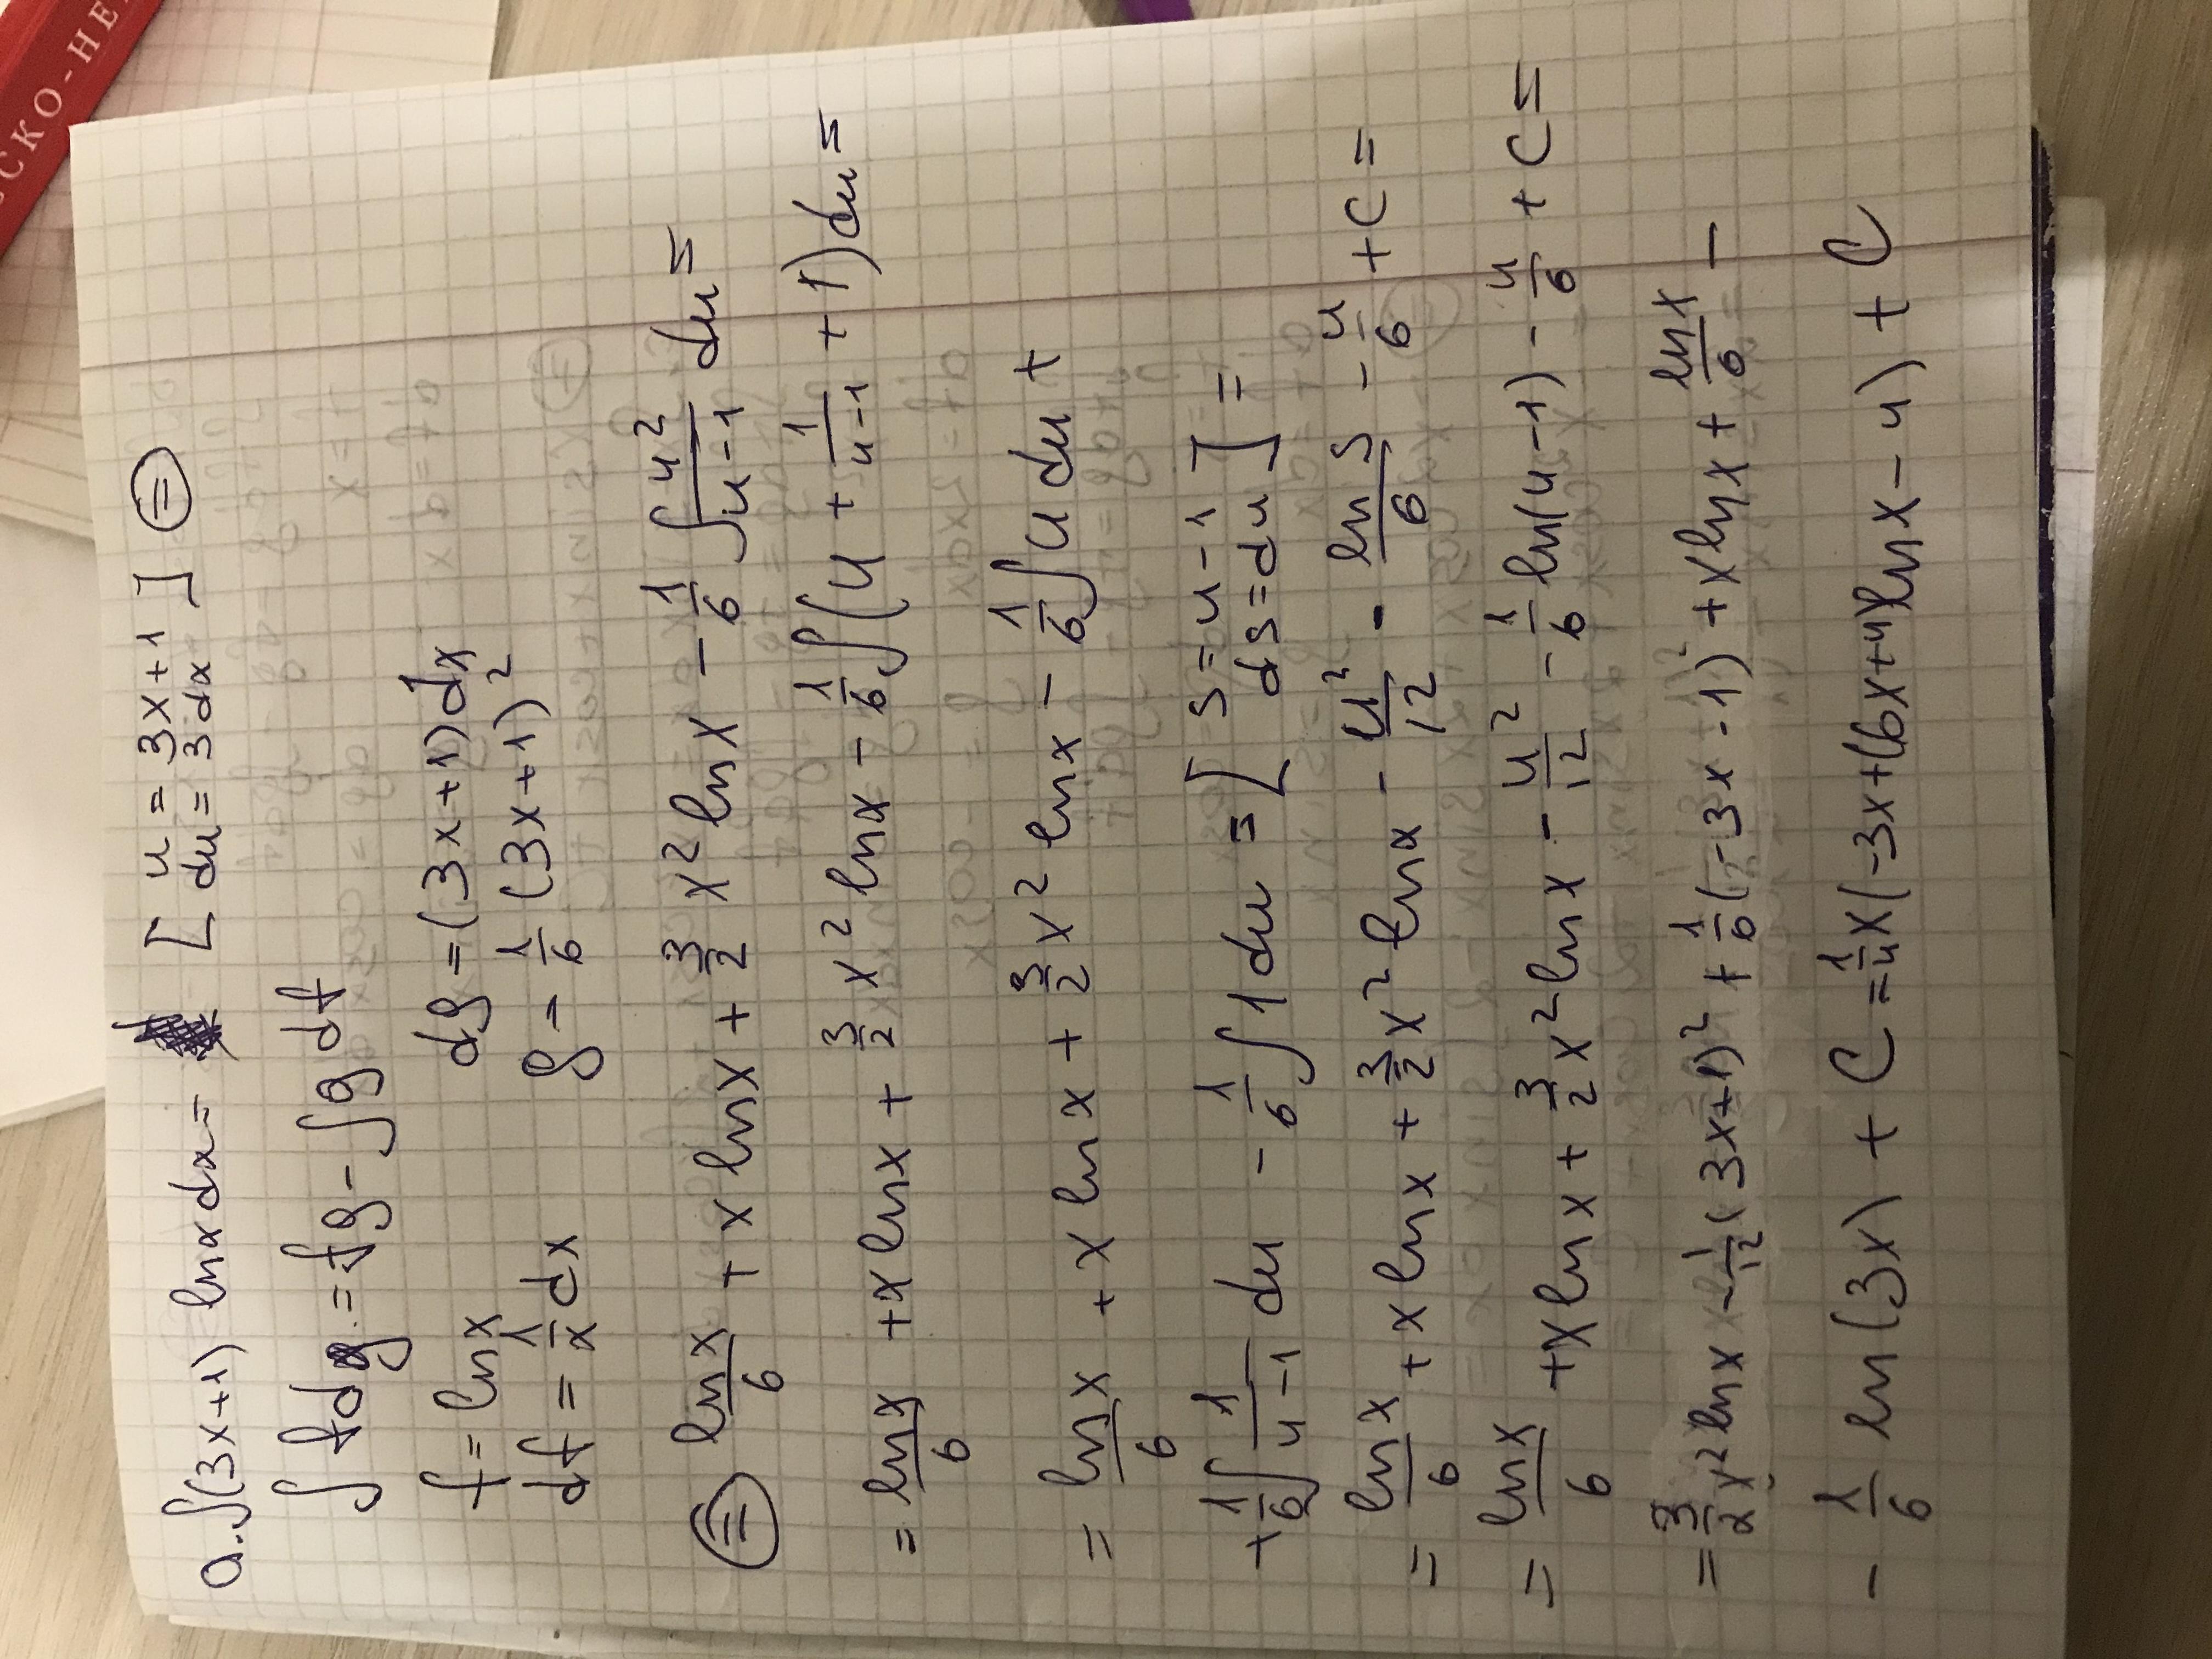 СКО-НЕ
a. ∫(3x+1) lnx dx = [ u = 3x+1
du = 3dx ] ⊜
∫ f dg = fg - ∫ g df
f = lnx dg = (3x+1)dx
df = 1/x dx g = 1/6 (3x+1)²
⊜ lnx/6 + x lnx + 3/2 x² lnx - 1/6 ∫ u²/(u-1) du =
= lnx/6 + x lnx + 3/2 x² lnx - 1/6 ∫(u + 1/(u-1) + 1) du =
= lnx/6 + x lnx + 3/2 x² lnx - 1/6 ∫ u du +
+ 1/6 ∫ 1/(u-1) du - 1/6 ∫ 1 du = [ s = u-1
ds = du ] =
= lnx/6 + x lnx + 3/2 x² lnx - u²/12 - ln s/6 - u/6 + C =
= lnx/6 + x lnx + 3/2 x² lnx - u²/12 - 1/6 ln(u-1) - u/6 + C =
= 3/2 x² lnx - 1/12 (3x+1)² + 1/6 (-3x-1) + x lnx + lnx/6 -
- 1/6 ln(3x) + C = 1/4 x(-3x+(6x+4) lnx - 4) + C